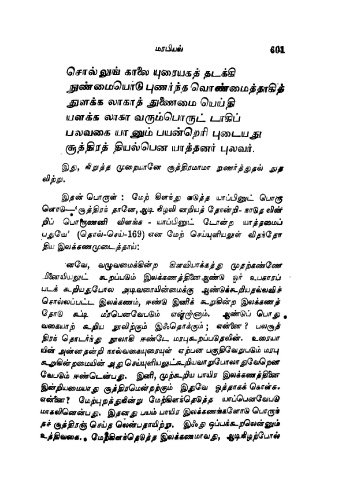 மரபியல் 601
சொல்லுங் காலை யுரையகத் தடக்கி
நுண்மையொடு புணர்ந்த வொண்மைத்தாகித்
துளக்க லாகாத் துணைமை யெய்தி
யளக்க லாகா வரும்பொருட் டாகிப்
பலவகை யானும் பயன்றெரி புடையது
சூத்திரத் தியல்பென யாத்தனர் புலவர்.
இது, நிறுத்த முறையானே சூத்திரமாமா றுணர்த்துதல் நுத
லிற்று.
இதன் பொருள் : மேற் கிளந்து எடுத்த யாப்பினுட் பொரு
ளொடு—'சூத்திரந் தானே, ஆடி நிழலி னறியத் தோன்றி- நாடுத லின்
றிப் பொருணனி விளங்க - யாப்பினுட் டோன்ற யாத்தமைப்
பதுவே' (தொல்-செய்-169) என மேற் செய்யுளியலுள் விதந்தோ
திய இலக்கணமுடைத்தாய்:
எனவே, வழுவமைக்கின்ற இனவியாக்கத்து முதற்கண்ணே
யினையியலுட் கூறப்படும் இலக்கணத்தினைஆண்டு ஓர் உபகாரப்
படக் கூறியதுபோல அடிவரையின்மைக்கு ஆண்டுக்கூறியதல்லவிச்
சொல்லப்பட்ட இலக்கணம், ஈண்டு இனிக் கூறுகின்ற இலக்கணத்
தோடு கூடி மரபெனவேபடும் என்றானாம். ஆண்டுப் பொது
வகையாற் கூறிய நூலிற்கும் இஃதொக்கும் ; என்னை ? பலசூத்
திரந் தொடர்ந்து நூலாகி ஈண்டே மரபுகூறப்படுதலின். உரையா
யின் அன்னதன்றி நால்வகையுரையுள் ஏற்பன பகுதிவேறுபடும் மரபு
கூறுகின்றமையின் அது செய்யுளியலுட்கூறியவாறுபோலாதுவேறென
வேபடும் ஈண்டென்பது. இனி, முற்கூறிய பாயிர இலக்கணத்தினை
இன்றியமையாது சூத்திரமென்றற்கும் இதுவே ஒத்தாகக் கொள்க.
என்னை? மேற்புறத்துநின்று மேற்கிளந்தெடுத்த யாப்பெனவேபடு
மாகலினென்பது. இதனது பயம் பாயிர இலக்கணங்களோடு பொருந்
தச் சூத்திரஞ் செய்த லென்பதாயிற்று. இஃது ஒப்பக்கூறலென்னும்
உத்திவகை. மேற்கிளந்தெடுத்த இலக்கணமாவது, ஆடிநிழற்போல்